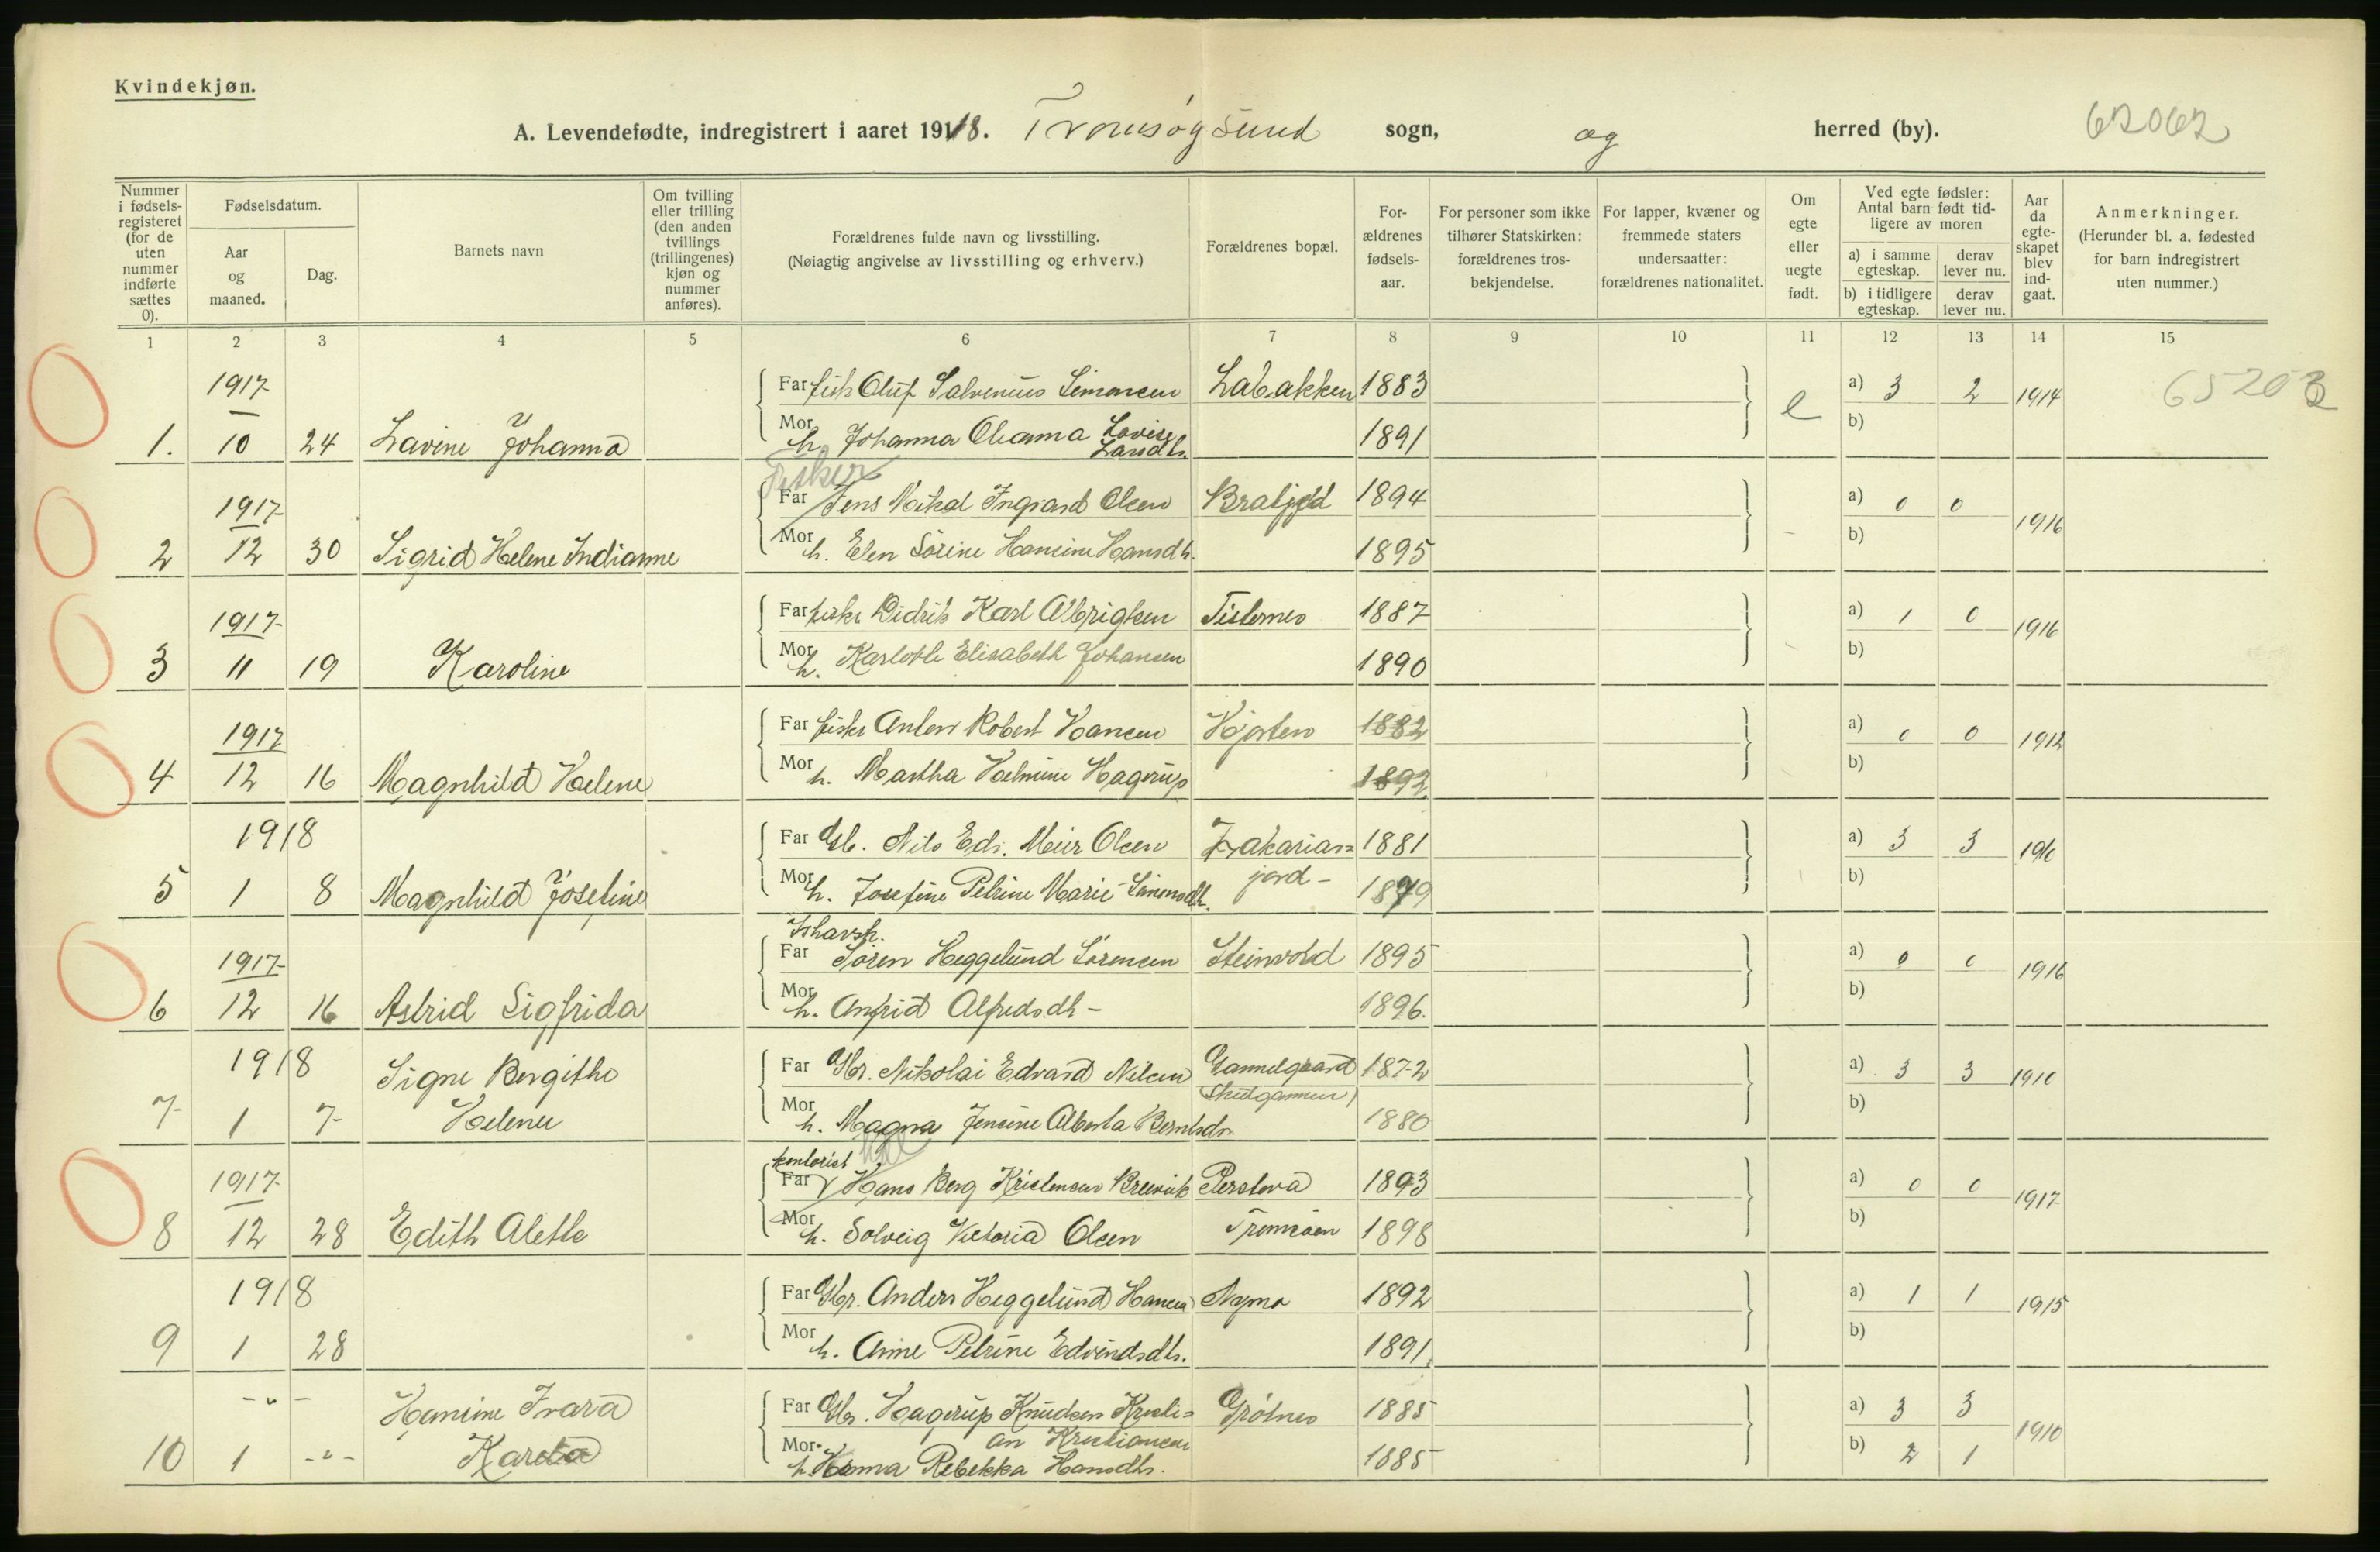 Kvindekjøn.
A. Levendefødte, indregistrert i aaret 1918. Tromsøysund sogn, og herred (by). 62062
Nummer i fødselsregisteret (for de uten nummer indførte sættes 0).
Fødselsdatum.
Aar og maaned.
Dag.
Barnets navn
Om tvilling eller trilling (den anden tvillings (trillingenes) kjøn og nummer anføres).
Forældrenes fulde navn og livsstilling.
(Nøiagtig angivelse av livsstilling og erhverv.)
Forældrenes bopæl.
For-
ældrenes
fødsels-
aar.
For personer som ikke
tilhører Statskirken:
forældrenes tros-
bekjendelse.
For lapper, kvæner og
fremmede staters
undersaatter:
forældrenes nationalitet.
Om
egte
eller
uegte
født.
Ved egte fødsler:
Antal barn født tid-
ligere av moren
a) i samme egteskap.
derav lever nu.
b) i tidligere egteskap.
derav lever nu.
Aar da egte-skapet blev ind-gaat.
Anmerkninger.
(Herunder bl. a. fødested
for barn indregistrert
uten nummer.)
1 2 3 4 5 6 7 8 9 10 11 12 13 14 15
1917 Far fisk Oluf Salvenius Simonsen Labakken 1883 e a) 3 2 1914 65203
1. 10 24 Lavine Johanna Mor h. Johanna Oleanna Lovise Larsdtr. 1891 b)
Fisker
1917 Far Jens Mikal Ingvard Olsen 1894 a) 0 0 1916
2 12 30 Sigrid Helene Indianne Mor h. Elen Sørine Hansine Hansdtr. 1895 b)
1917 Far fisker Didrik Karl Albrigtsen Tisternes 1887 a) 1 0 1916
3 11 19 Karoline Mor h. Karlotte Elisabeth Johansen 1890 b)
1917 Far fisker Anton Robert Hansen 1882 a) 0 0 1912
4 12 16 Magnhild Helene Mor h. Martha Helmine Hagerup 1892 b)
1918 Far Gbr. Nils Edv. Meier Olsen Zakarias= 1881 a) 3 3 1910
5 1 8 Magnhild Josefine Mor h. Josefine Petrine Marie Simonsdtr. jord- 1879 b)
Ishavsk.
1917 Far Sören Heggelund Sörensen Steinvold 1895 a) 0 0 1916
6 12 16 Astrid Sigfrida Mor h. Anfrid Alfredsdtr- 1896. b)
1918 Signe Bergithe Far Gbr. Nikolai Edvard Nilsen Gammelgaard 1872 a) 3 3 1910
7 1 7 Helene Mor h. Magna Jensine Alberta Berntsdr. Skulgammen 1880 b)
kontorist
1917 Far Hans Berg Kristensen Breivik 1893 a) 0 0 1917
8 12 28 Edith Alette Mor h. Solveig Victoria Olsen Tromsöen 1898 b)
1918 Far Gbr. Anders Heggelund Hansen Nymo 1892 a) 1 1 1915
9 1 28 Mor h. Anne Petrine Edvindsdtr. 1891 b)
-"- Hansine Ivara Far Gbr. Hagerup Knudsen Kristi= Grötnes 1885 a) 3 3 1910
an Kristiansen
10 1 -"- Mor h. Hanna Rebekka Hansdtr. 1885 b) 2 1